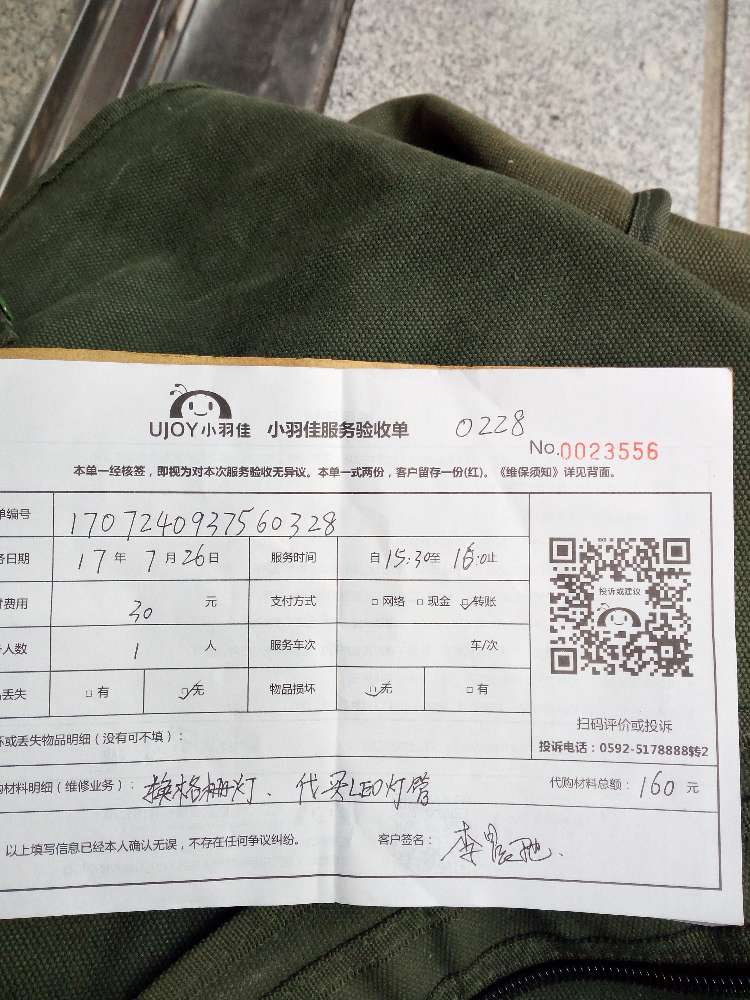 UJOY小羽佳 小羽佳服务验收单 0228
No.0023556
本单一经核签，即视为对本次服务验收无异议。本单一式两份，客户留存一份(红)。《维保须知》详见背面。
单编号 1707240937560328
务日期 17年7月26日 服务时间 自15:30至16:0止
费用 30元 支付方式 □网络 □现金 □转账
人数 1人 服务车次 车/次
丢失 □有 □无 物品损坏 □无 □有
投诉或建议
扫码评价或投诉
投诉电话：0592-5178888转2
坏或丢失物品明细（没有可不填）：
材料明细（维修业务）：换格栅灯、代买LED灯管 代购材料总额：160元
以上填写信息已经本人确认无误，不存在任何争议纠纷。 客户签名：李